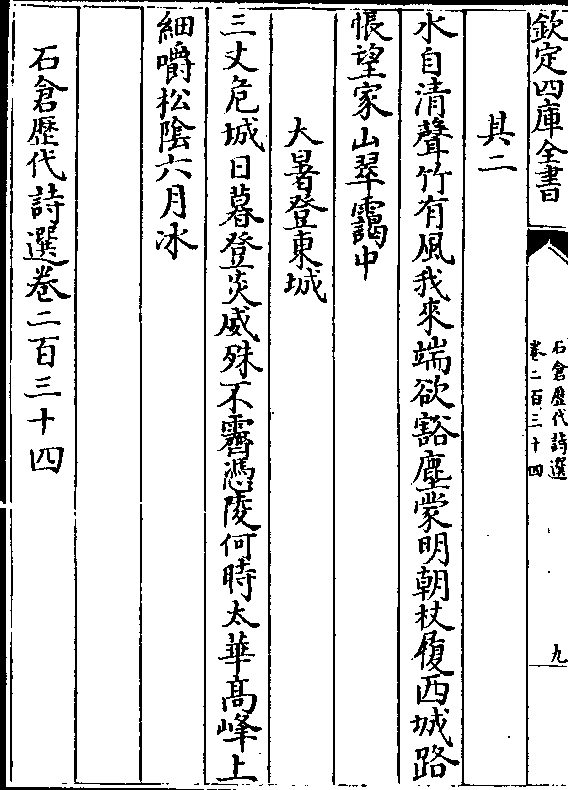 欽定四庫全書
石倉歷代詩選
卷二百三十四
九
其二
水自清聲竹有風我來端欲豁塵蒙明朝杖履西城路
悵望家山翠靄中
大暑登東城
三丈危城日暮登炎威殊不霽憑陵何時太華高峰上
細嚼松陰六月冰
石倉歷代詩選卷二百三十四